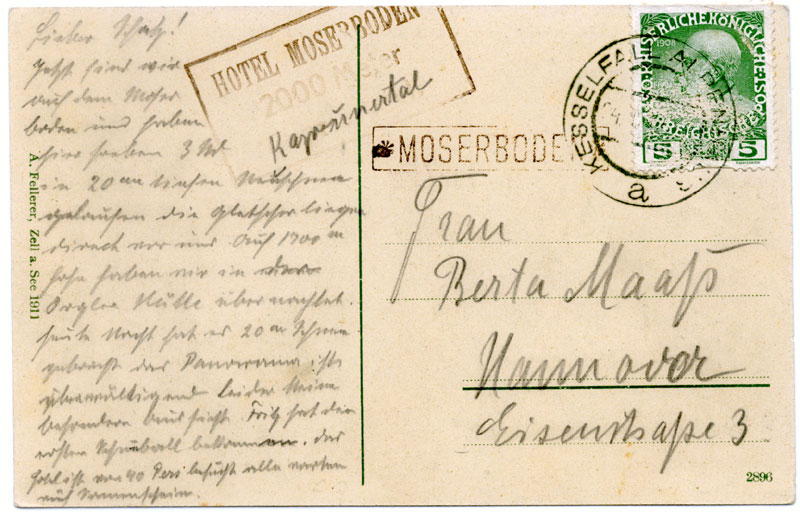 Lieber Schatz!
Jetzt sind wir
auf dem Moser
boden und haben
hier soeben 3 Std
in 20 cm tiefen Neuschnee
gelaufen die Gletscher liegen
direct vor uns Auf 1700 m
Höhe haben wir in
Orgler Hütte übernachtet.
heute Nacht hat es 20 cm Schnee
gebracht das Panorama ist
überwältigend leider keine
besondere Aussicht. Fritz hat den
ersten Schneeball bekommen. das
Hotel ist von 40 Pers besucht alle warten
auf Sonnenschein.
A. Fellerer, Zell a. See 1911
HOTEL MOSERBODEN
2000 Meter
Kaprunertal
MOSERBODEN
KESSELFALL ALPENH
a
1908
5 5
Frau
Berta Maaß
Hannover
Eisenstraße 3
2896